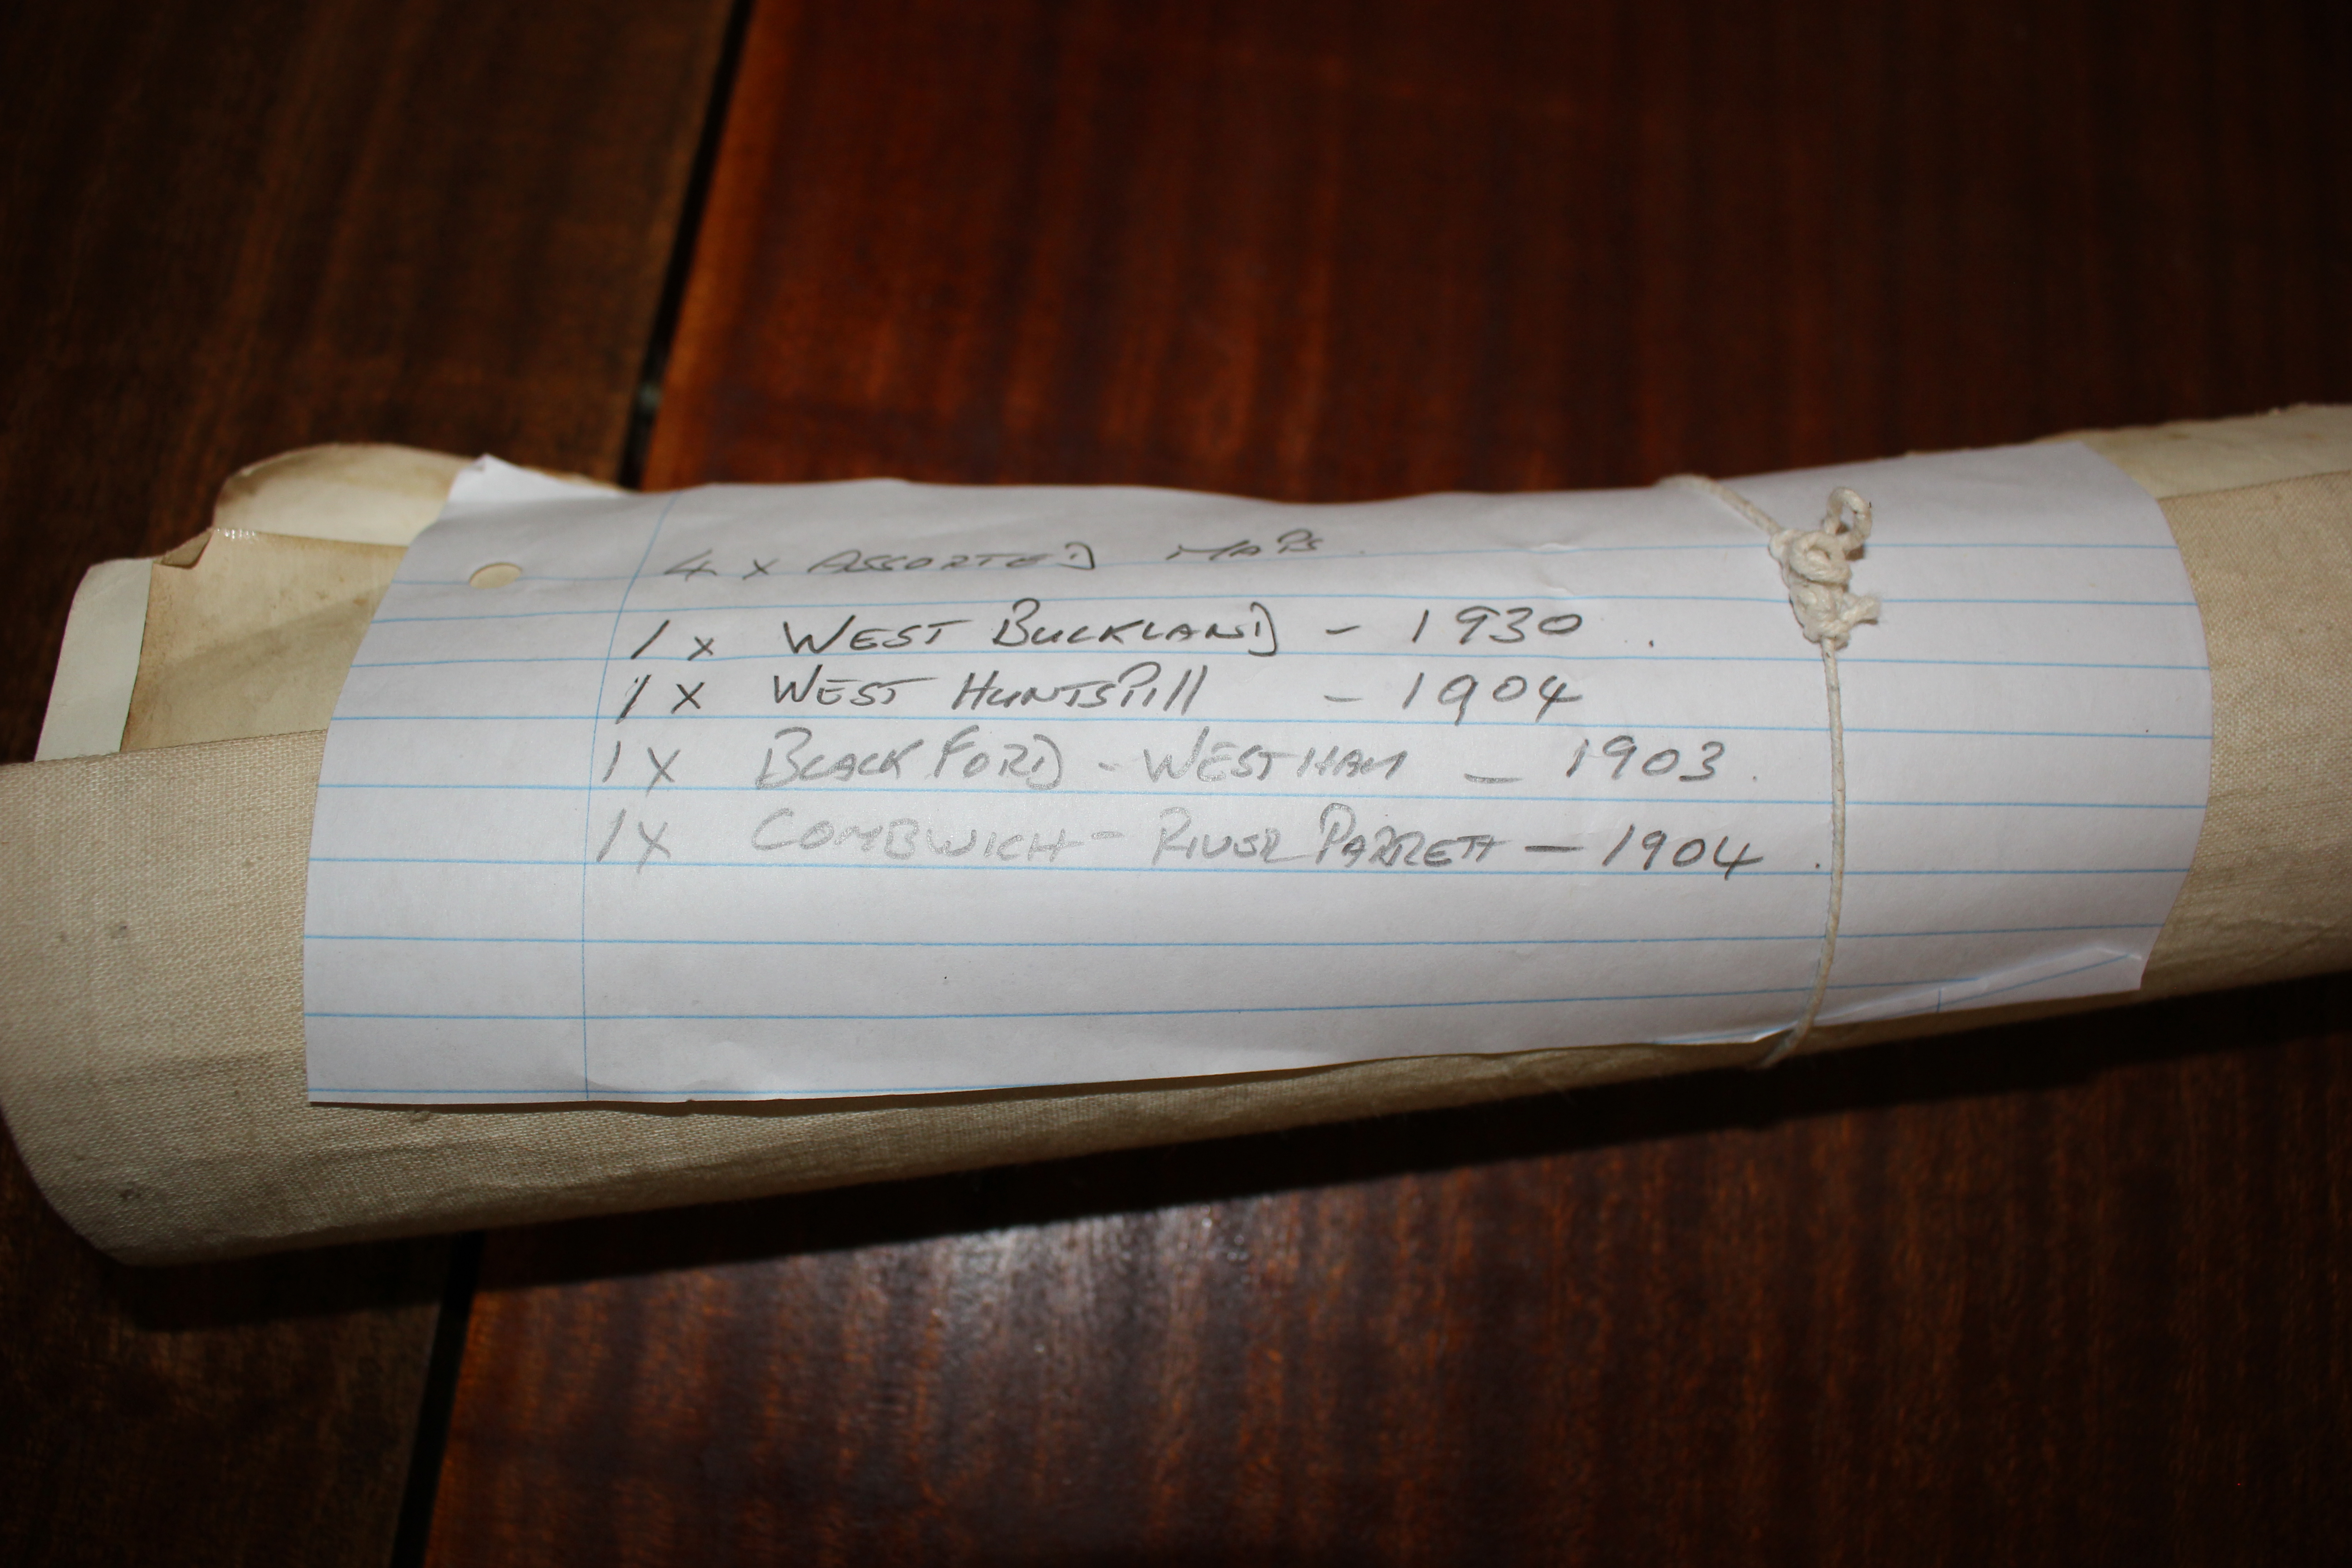 4 x ASSORTED MAPS.
1 x WEST BUCKLAND - 1930.
1 x WEST HUNTSPill - 1904
1 x BLACKFORD - WESTHAM - 1903.
1 x COMBWICH - RIVER PARRETT - 1904.